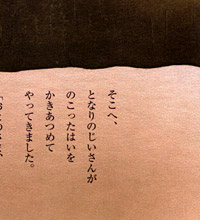 そこへ、
となりのじいさんが
のこったはいを
かきあつめて
やってきました。